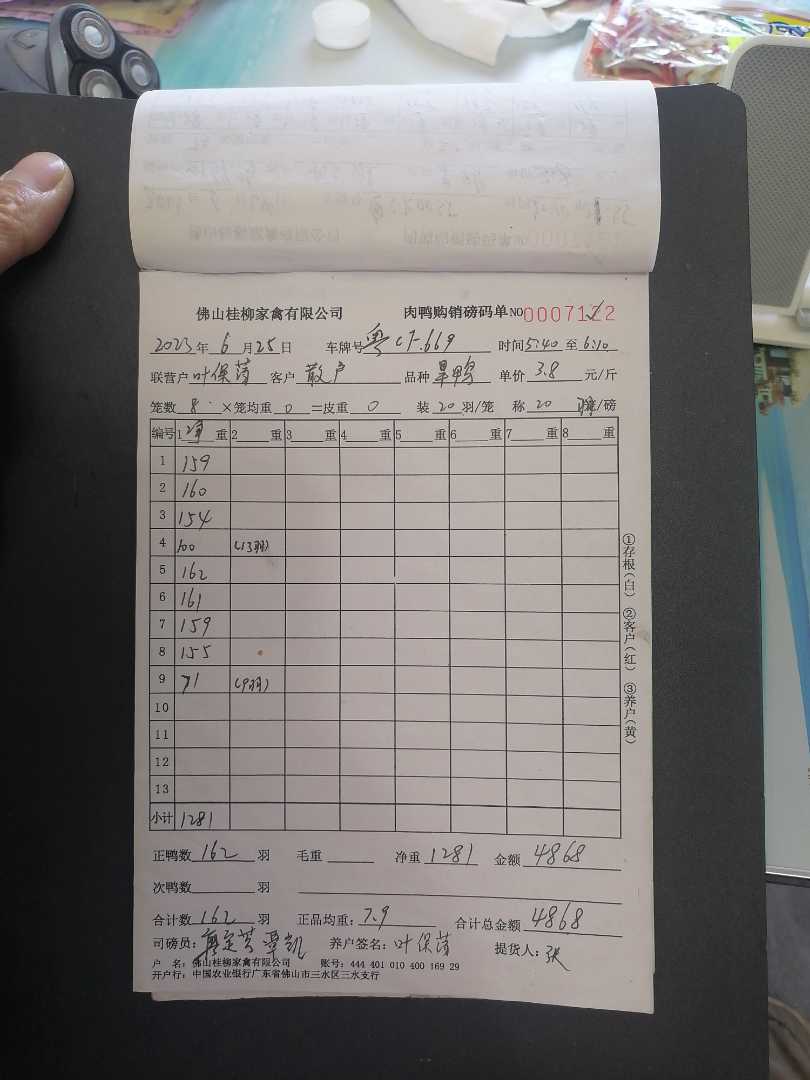 佛山桂柳家禽有限公司 肉鸭购销磅码单 NO 0007122
2023年6月25日 车牌号 粤 时间 5:40 至 6:10
联营户 叶保 客户 散户 品种 旱鸭 单价 3.8 元/斤
笼数 8 ×笼均重 0 =皮重 0 装 20 羽/笼 称 20 /磅
编号 1 净 重 2 重 3 重 4 重 5 重 6 重 7 重 8 重
1 159
2 160
3 154
4 100 (13羽)
5 162
6 161
7 159
8 155
9 71 (9羽)
10
11
12
13
小计 1281
正鸭数 162 羽 毛重 净重 1281 金额 4868
次鸭数 羽
合计数 162 羽 正品均重: 7.9 合计总金额 4868
司磅员: 养户签名: 叶保 提货人: 张
户 名: 佛山桂柳家禽有限公司 账号: 444 401 010 400 169 29
开户行: 中国农业银行广东省佛山市三水区三水支行
①存根(白) ②客户(红) ③养户(黄)